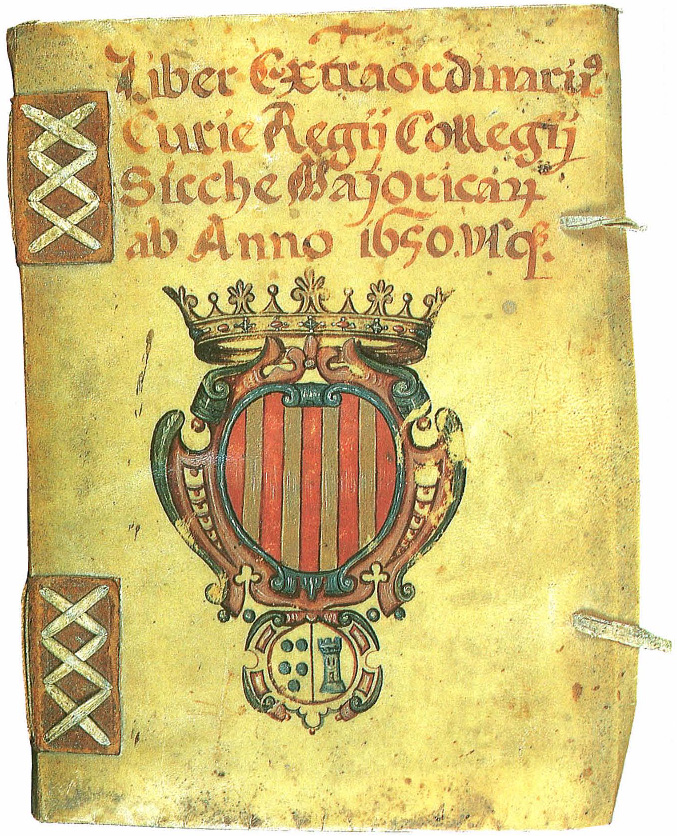 Liber Extraordinariuꝰ
Curie Regij Collegij
Sicche Majoricaꝝ
ab Anno 1650. vsqꝫ.